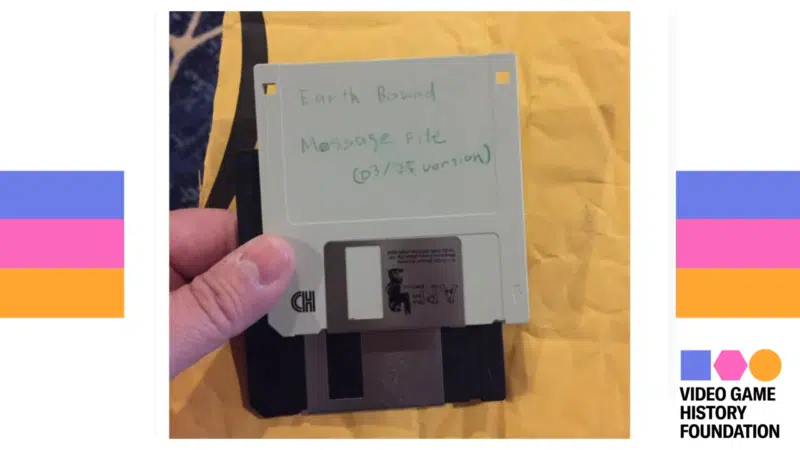 Earth Bound
Message File
(03/25 version)
HD
VIDEO GAME
HISTORY
FOUNDATION